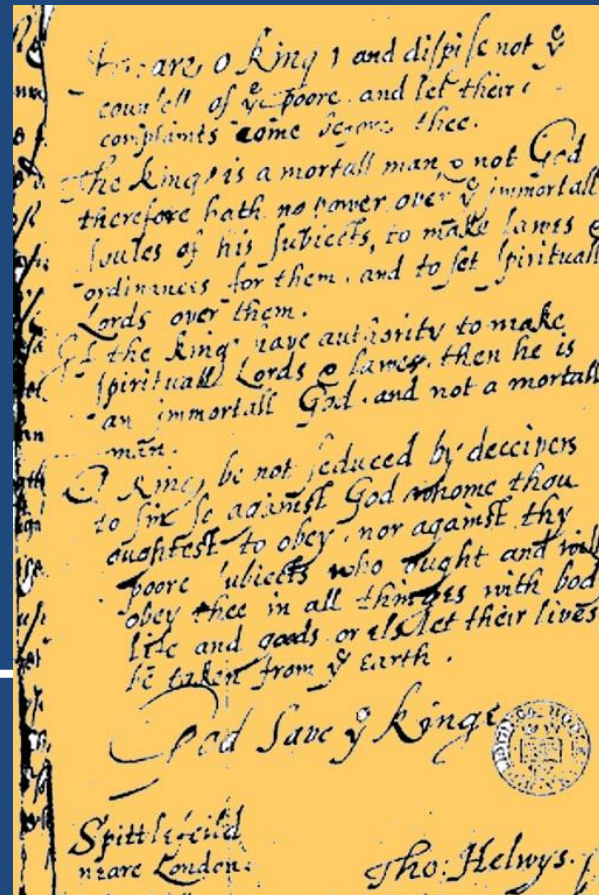 Heare, o king, and dispise not yͤ
counsell of yͤ poore, and let their
complaints come before thee.
The king is a mortall man, & not God
therefore hath no power over yͤ immortall
soules of his subiects, to make lawes &
ordinances for them, and to set spirituall
Lords over them.
If the king have authority to make
spirituall Lords & lawes, then he is
an immortall God, and not a mortall
man.
O king, be not seduced by deceivers
to sin so against God whome thou
oughtest to obey, nor against thy
poore subiects who ought and will
obey thee in all thinges with body
life and goods, or els let their lives
be taken from yͤ earth.
God save yͤ kinge
Spittlefeild
neare London.
Tho: Helwys.